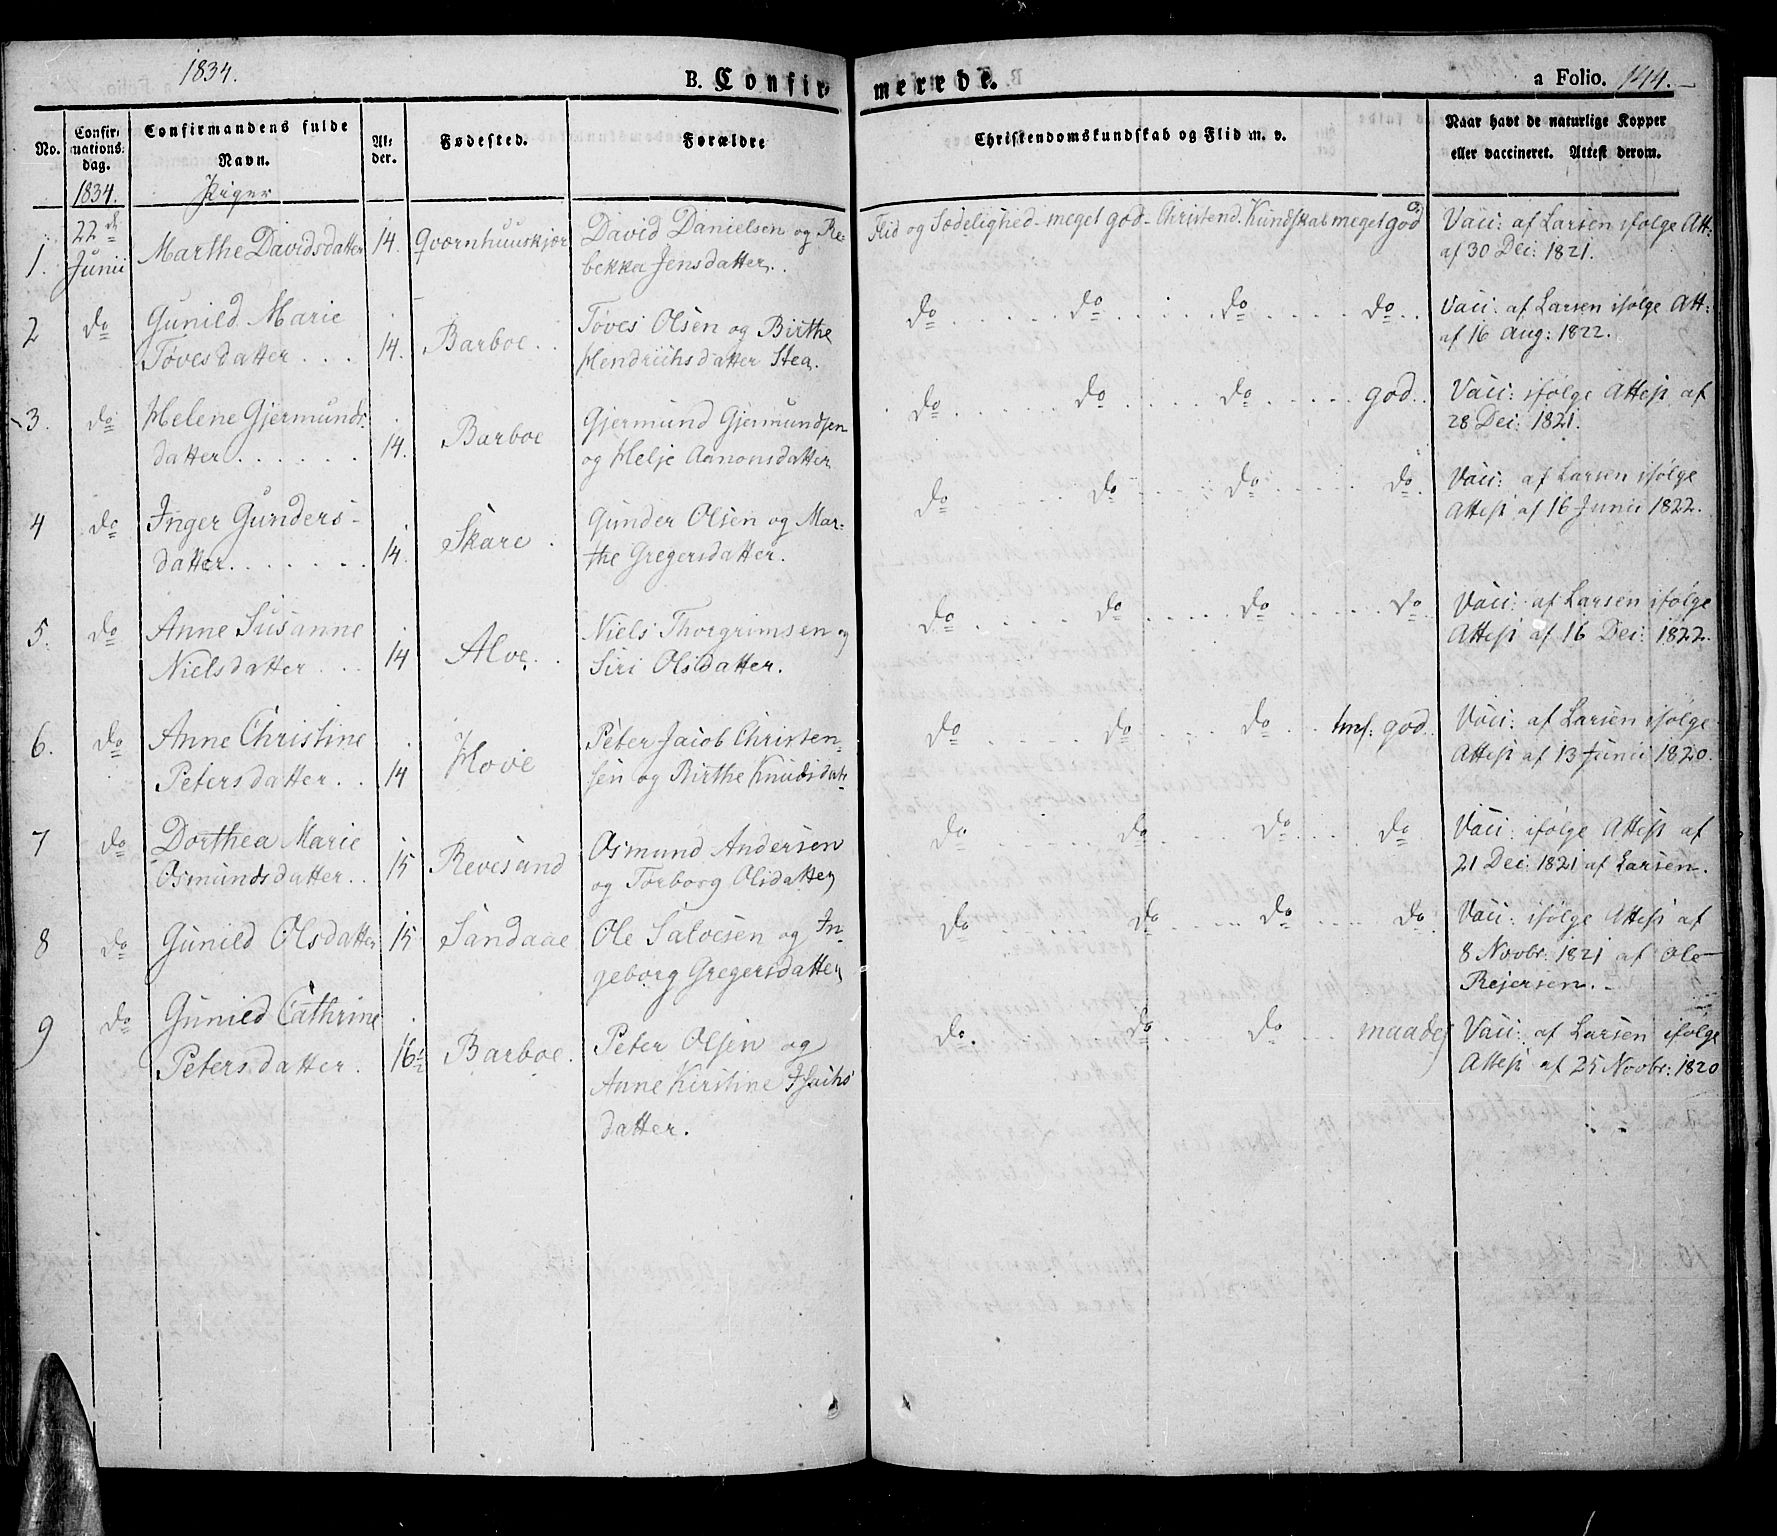 1834.
B. Confirmerede.
a Folio. 144.
No.
Confir-
mations-
dag.
Confirmandens fulde
Navn.
Al-
der.
Fødested.
Forældre
Christendomskundskab og Flid m. v.
Naar havt de naturlige Kopper
eller vaccineret. Attest derom.
1834.
Piger
1. 22de Junii Marthe Davidsdatter 14. Qværnhuuskjær David Danielsen og Re-
bekka Jensdatter. Flid og Sædelighed - meget god - Christend. Kundskab meget god Vacc: af Larsen ifølge Att:
af 30 Dec: 1821.
2 do Gunild Marie
Tøvesdatter 14. Barboe Tøves Olsen og Birthe
Hendrichsdatter Stea. do do do do Vacc: af Larsen ifølge Att:
af 16 Aug: 1822.
3. do Helene Gjermunds-
datter 14. Barboe Gjermund Gjermundsen
og Helje Aanonsdatter do do do god Vacc: ifølge Attest af
28 Dec: 1821.
4 do Inger Gunders-
datter 14. Skare Gunder Olsen og Mar-
the Gregersdatter. do do do do Vacc: af Larsen ifølge
Attest af 16 Junii 1822.
5. do Anne Susanne
Nielsdatter 14 Alve Niels Thorgrimsen og
Siri Olsdatter. do do do do Vacc: af Larsen ifølge
Attest af 16 Dec: 1822.
6. do Anne Christine
Petersdatter 14 Hove Peter Jacob Christen-
sen og Birthe Knudsdat- do do do god Vacc: af Larsen ifølge
Attest af 13 Junii 1820.
7 do Dorthea Marie
Osmundsdatter 15 Revesand Osmund Andersen
og Torborg Olsdatter do do do do Vacc: ifølge Attest af
21 Dec: 1821 af Larsen.
8 do Gunild Olsdatter 15 Sandaae Ole Salvesen og In-
geborg Gregersdatter do do do do Vacc: ifølge Attest af
8 Novbr: 1821 af Ole
Rejersen.
9 do Gunild Cathrine
Petersdatter 16½ Barboe. Peter Olsen og
Anne Kirstine Isachs
datter. do. do do maadel Vacc: af Larsen ifølge
Attest af 25 Novbr: 1820